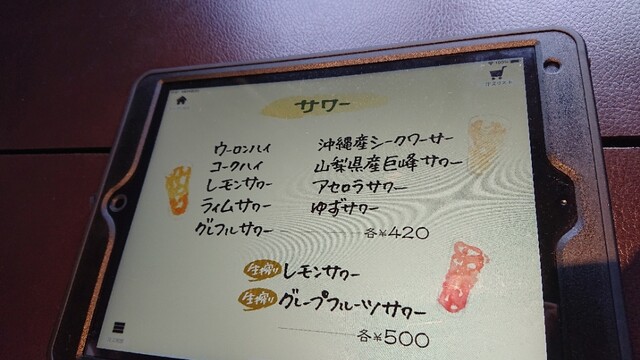 サワー
ウーロンハイ
コークハイ
レモンサワー
ライムサワー
グレフルサワー
沖縄産シークワーサー
山梨県産巨峰サワー
アセロラサワー
ゆずサワー
各¥420
生搾り レモンサワー
生搾り グレープフルーツサワー
各¥500